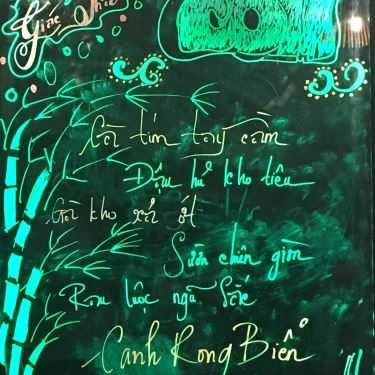 Cà tím tay cầm
Đậu hủ kho tiêu
Gà kho xả ớt
Sườn chiên giòn
Rau luộc ngũ Sắc
Canh Rong Biển